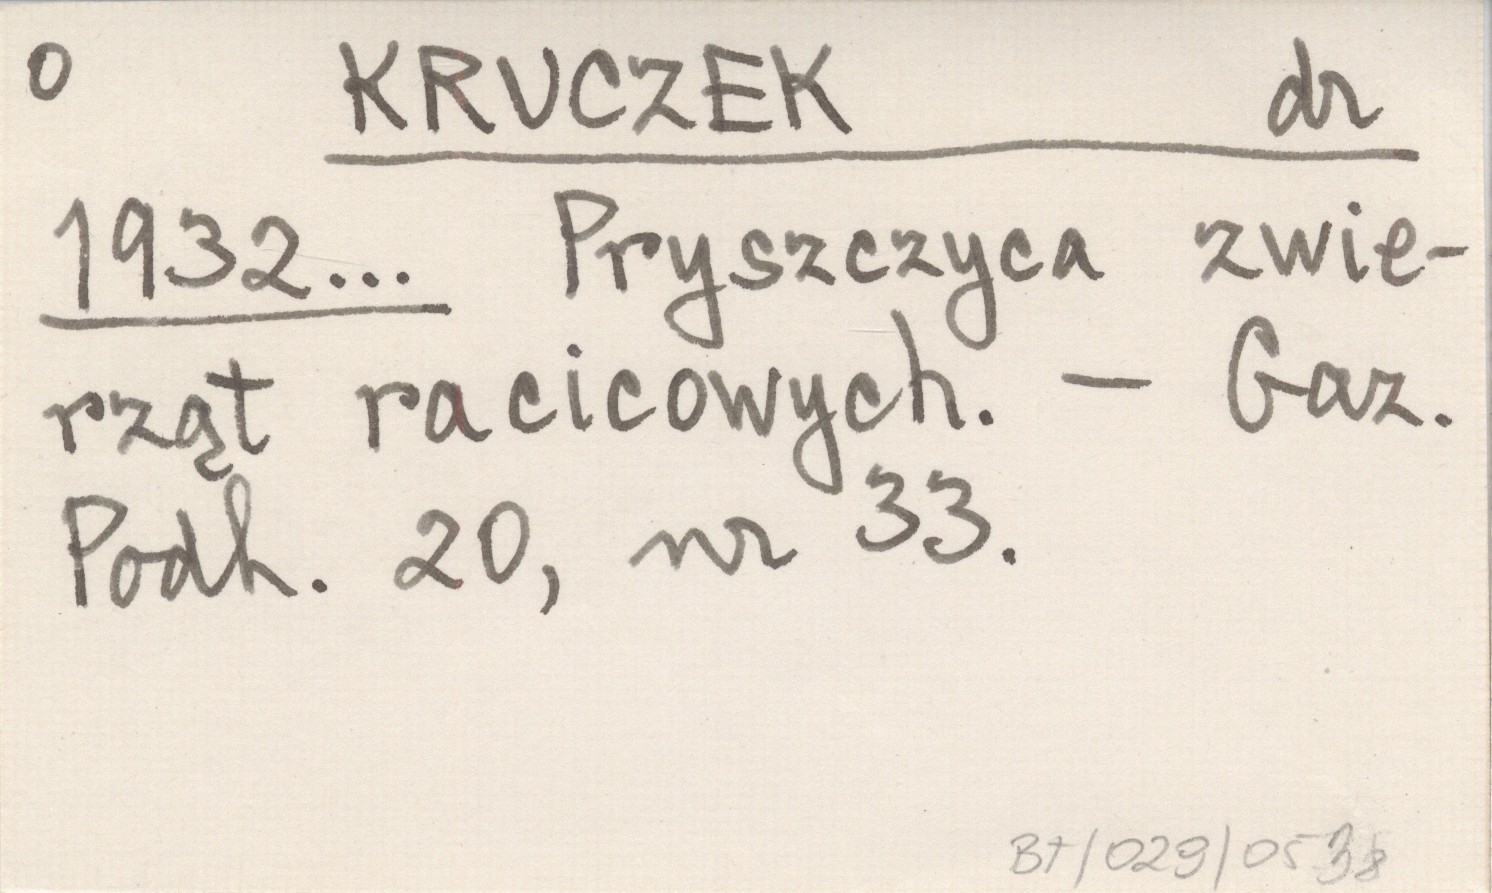 0 KRUCZEK dr
1932... Pryszczyca zwie-
rząt racicowych. — Gaz.
Podh. 20, nr 33.
BT/029/0538